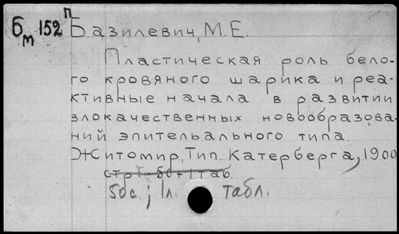 Б м 152 п Базилевич, М.Е.
Пластическая роль бело-
го кровяного шарика и реа-
ктивные начала в развитии
злокачественных новообразова-
ний эпительального типа.
Житомир, Тип. Катерберга, 1900
стр. 50+1 таб.
50с.; 1л. табл.